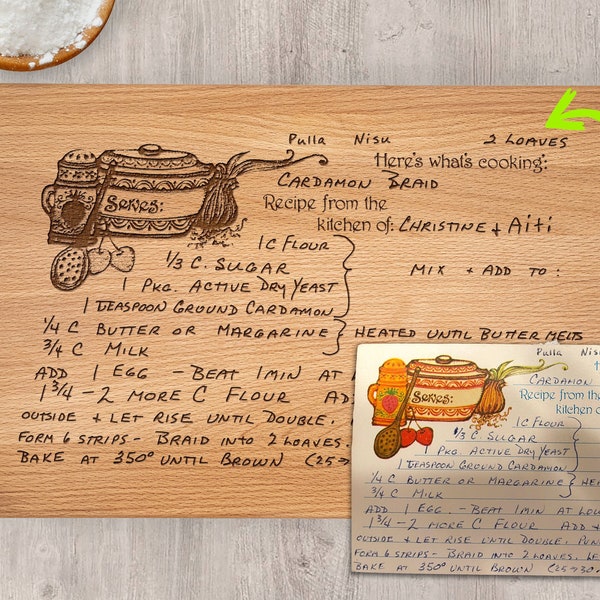 Pulla Nisu 2 LOAVES
Here's what's cooking:
CARDAMON BRAID
Recipe from the
kitchen of: CHRISTINE + Aiti
Serves:
1 C FLOUR
1/3 C. SUGAR
MIX + ADD TO:
1 PKG. ACTIVE DRY YEAST
1 TEASPOON GROUND CARDAMON
1/4 C BUTTER OR MARGARINE HEATED UNTIL BUTTER MELTS
3/4 C MILK
ADD 1 EGG - BEAT 1 MIN AT
1 3/4 - 2 MORE C FLOUR AD
OUTSIDE + LET RISE UNTIL DOUBLE.
FORM 6 STRIPS - BRAID INTO 2 LOAVES.
BAKE AT 350° UNTIL BROWN (25→
Pulla Nisu
CARDAMON
Recipe from the
kitchen of
Serves:
1 C FLOUR
1/3 C. SUGAR
1 PKG. ACTIVE DRY YEAST
1 TEASPOON GROUND CARDAMON
1/4 C BUTTER OR MARGARINE HEA
3/4 C MILK
ADD 1 EGG. - BEAT 1 MIN AT LOW
1 3/4 - 2 MORE C FLOUR ADD
OUTSIDE + LET RISE UNTIL DOUBLE. PUN
FORM 6 STRIPS - BRAID INTO 2 LOAVES. LE
BAKE AT 350° UNTIL BROWN (25→30